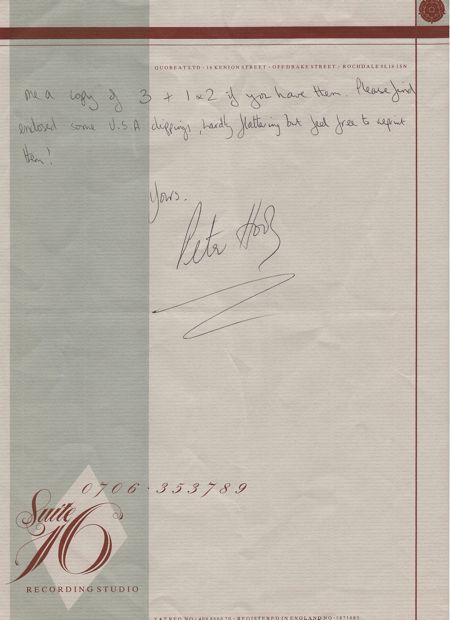 QUOBEAT LTD · 16 KENION STREET · OFF DRAKE STREET · ROCHDALE OL16 1SN
me a copy of 3 + 1 & 2 if you have them. Please find
enclosed some U.S.A clippings, hardly flattering but feel free to reprint
them!
Yours.
Peter Hook
0706·353789
Suite
16
RECORDING STUDIO
REGISTERED IN ENGLAND NO